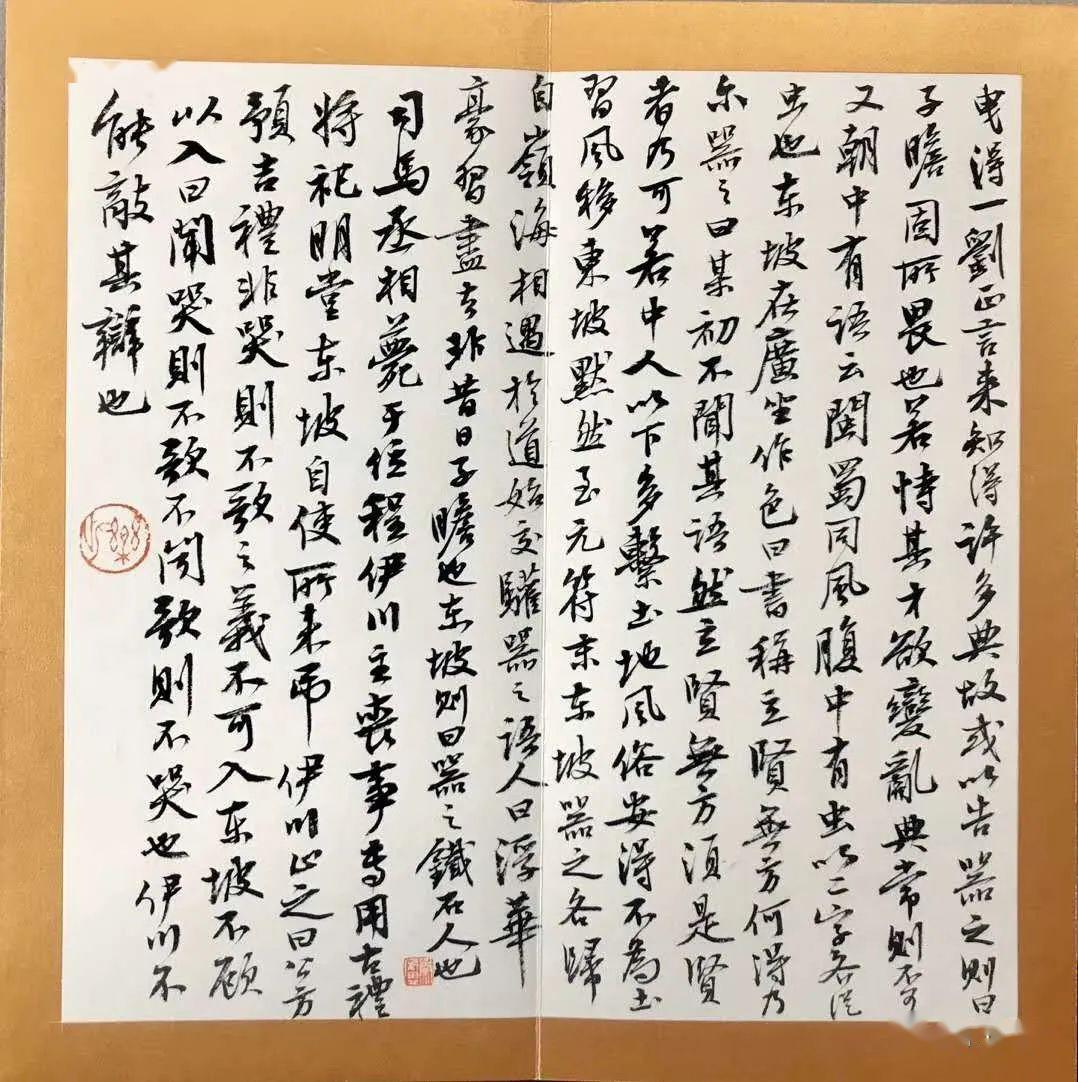 曳得一劉正言来知得许多典故或以告器之则曰
子瞻固所畏也若恃其才欲變亂典常則不可
又朝中有语云闽蜀同风腹中有虫以二字各从
虫也东坡在廣坐作色曰書稱立賢無方何得乃
尔器之曰某初不聞其语然立賢無方須是賢
者乃可若中人以下多繫土地风俗安得不為土
習风移東坡默然至元符末东坡器之各歸
自嶺海相遇於道始交驩器之语人曰浮華
豪習盡去非昔日子瞻也东坡则曰器之鐵石人也
司馬丞相薨于位程伊川主喪事专用古禮
将祀明堂东坡自使所来吊伊川止之曰公方
預吉禮非哭則不歌之義不可入东坡不顾
以入曰聞哭則不歌不闻歌則不哭也伊川不
能敵其辯也